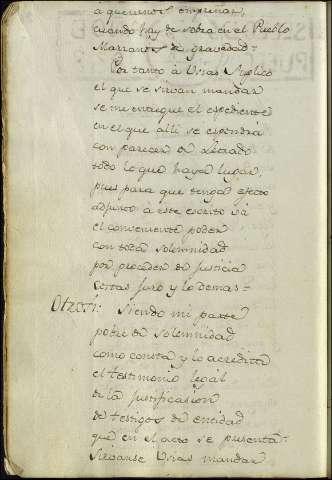 a querernos empreñar,
cuando hay de sobra en el Pueblo
Marranos de gravedad.
Por tanto á Usias Suplico
el que se sirvan mandar
se me entregue el espediente
en el que allí se espondrá
con parecer de Letrado
todo lo que haya lugar,
pues para que tenga efecto
adjunto á este escrito vá
el conveniente poder
con toda solemnidad
por proceder de justicia
Costas juro y lo demas.
Otrosi: Siendo mi parte
pobre de solemnidad
como consta y lo acredita
el testimonio legal
de la justificacion
de testigos de entidad
que en el acto se presenta.
Sirvanse Usias mandar